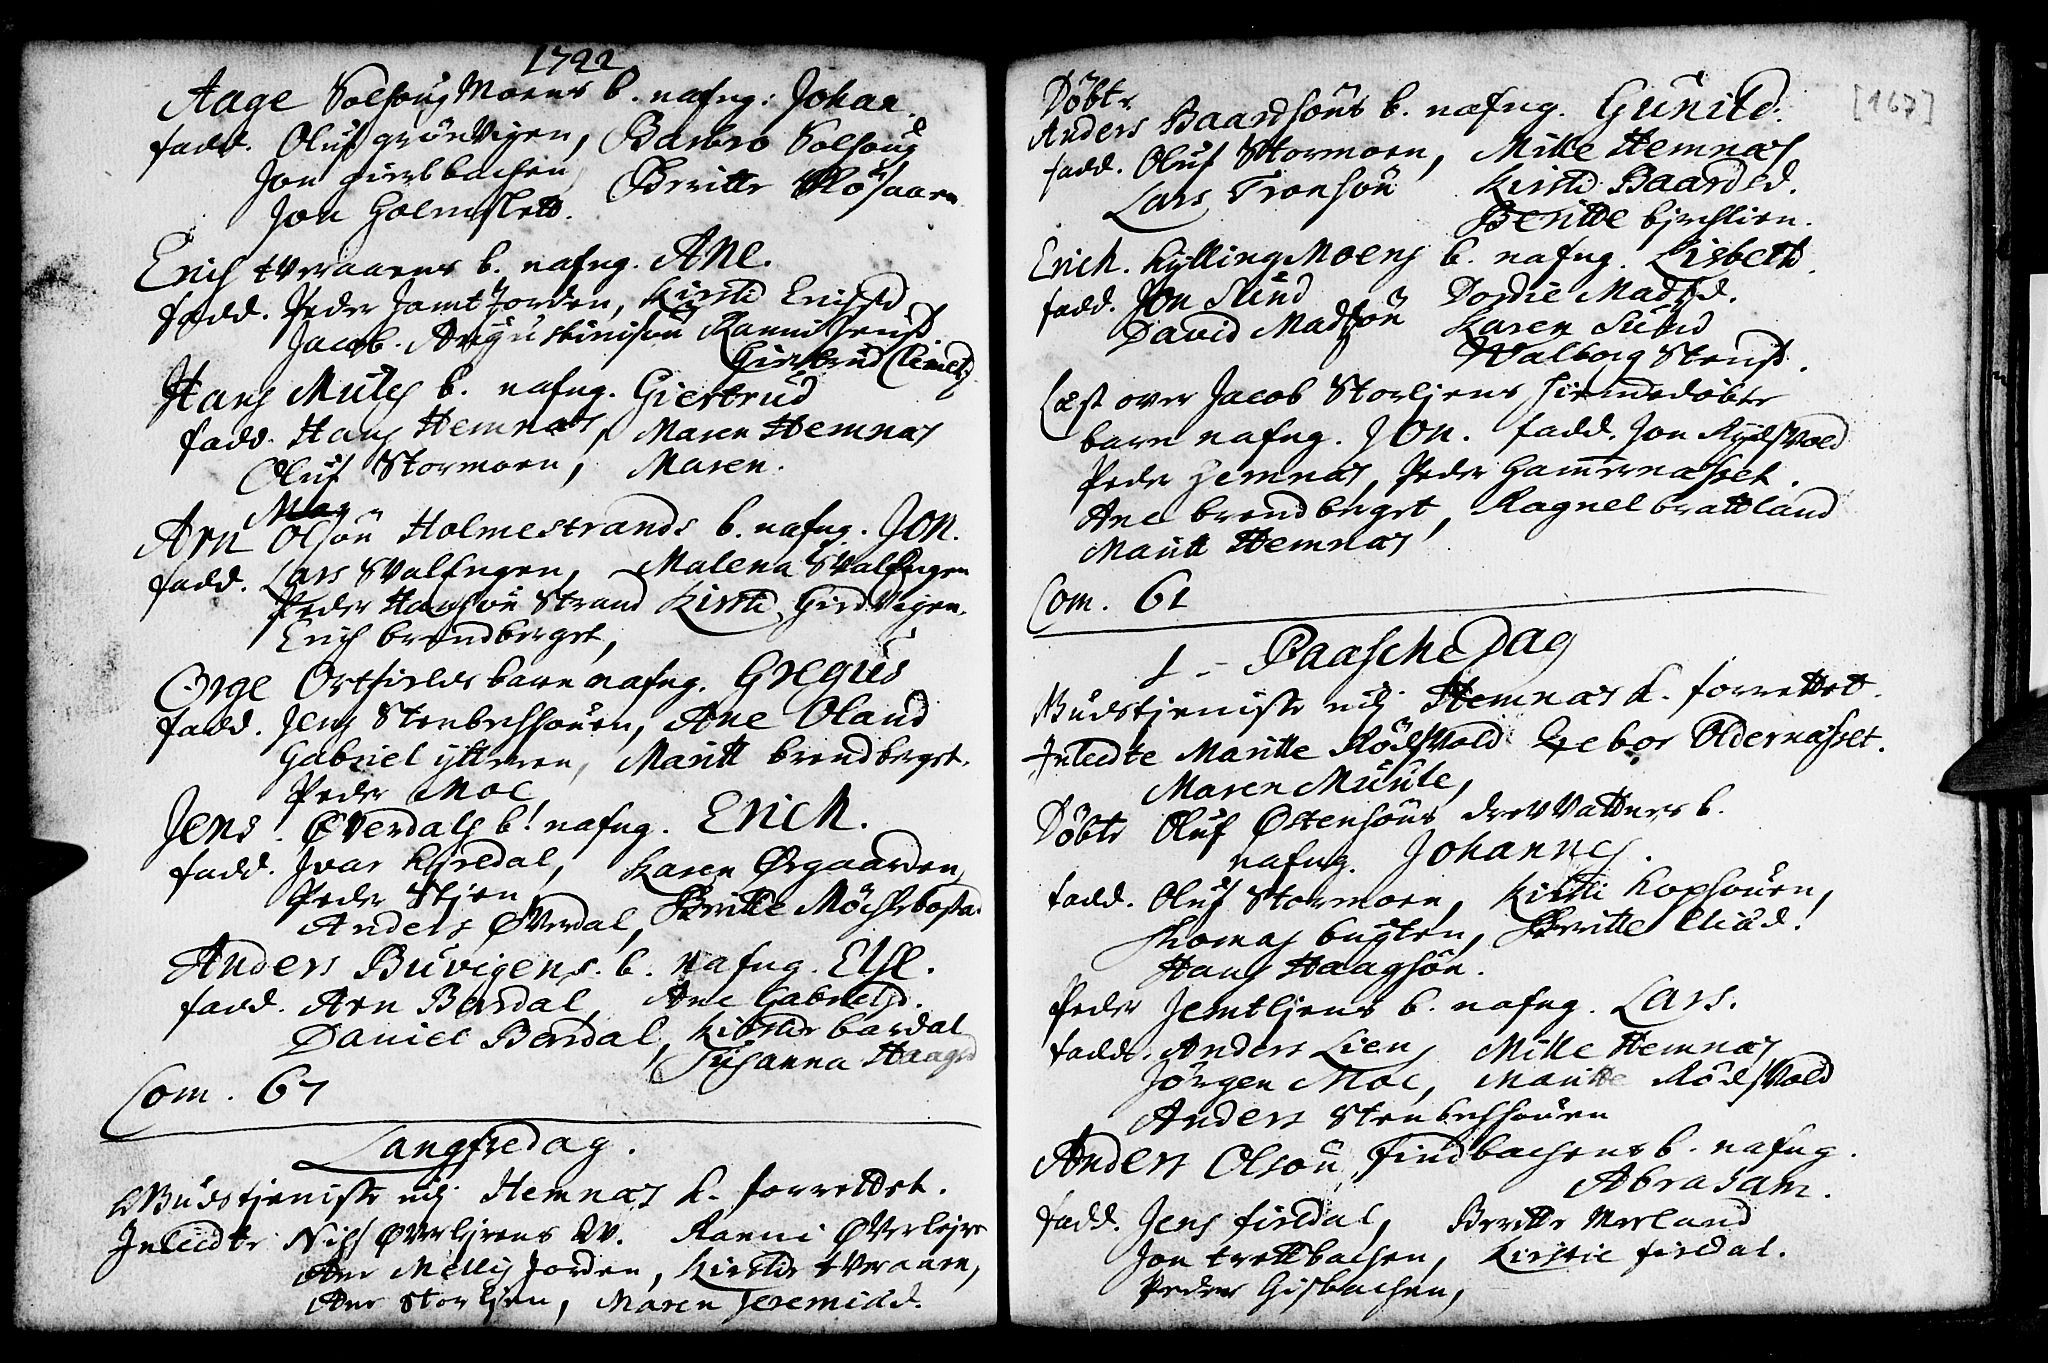 1722
Aage Solhoug Moens b. nafng: Johan.
fadd. Oluf grönVigen, Barbro Solhoug
Jon
Jon Holmslett. Beritte Rösaaen
Erich tveraaens b. nafng. Ane.
fadd. Peder Jamtjorden, Kirsti Erichsd
Jacob. Augustinisön Ranni Jensd.
Giertrud Clemetz
Hans Mules b. nafng. Giertrud
fadd. Hans Hemnæs, Maren Hemnæs
Oluf Stormoen, Maren.
Arn Olsön Holmestrands b. nafng. Jon.
fadd. Lars Valengen, Malena Valengen
Peder Hansön Strand Kirsti
Erich brendberget,
Örge Ortfields barn nafng. Gregus
fadd. Jens Stenbechhouen, Ane Oland
Gabriel yttermen, Maritt brendberget.
Peder Moe
Jens. Øverdals b! nafng. Erich.
fadd. Ivar Lejredal, Karen Ørgaarden,
Peder Stien
Anders Øverdal, Beritte Möchlebosta
Anders Buvigens. b. nafng. Else.
fadd. Arn Berdal, Ane Gabrielsd.
Daniel Berdal, Kirstie bardal
Susanna Haagsd
Com. 67
Langfredag.
Gudstieniste udj Hemnæs K. forrettet.
Inledte Nils Øverlejrens Qv. Ranni Øverlejre
Ane Mellijorden, Kirstie tveraaen,
Ane Storljen, Maren Jeremiæd.
[167]
Döbte
Anders Baardsöns b. nafng. Gunild.
fadd. Oluf Stormoen, Mille Hemnæs
Lars Tronsön Kirsti Baardsd.
Beritte bircklien.
Erich. KyllingMoens b. nafng. Lisbeth.
fadd. Jon Sund Dordie Madsd.
David Madsön Karen Sund
Walborg Stensd.
Læst over Jacob Storljens hiemmedöbte
barn nafng. Jon. fadd. Jon RydsVold
Peder Hemnæs, Peder Hammernæsset.
Ane brendberget, Ragnel brattland
Maritt Hemnæs
Com. 61
1 - Paasche Dag
Gudstieniste udj Hemnæs K. forrettet.
Inledte Maritte RödsVold Gebor Oldernæsset.
Maren Mule,
Döbte Oluf Østensöns drevVattners b.
nafng. Johannes.
fadd. Oluf Stormoen, Kirsti Kophouen,
Thomas bugten, Beritte Eliæd!
Hans Haagsön.
Peder Jemtljens b. nafng. Lars.
fadd. Anders Lien, Mille Hemnæs
Jörgen Moe, Maritte RödsVold
Anders Stenbechhouen
Anders Olsön, findbachens b. nafng.
Abraham.
fadd. Jens fireldal, Beritte Merland
Jon trettbachen, Kirstie fireldal.
Peder Gisbachen,